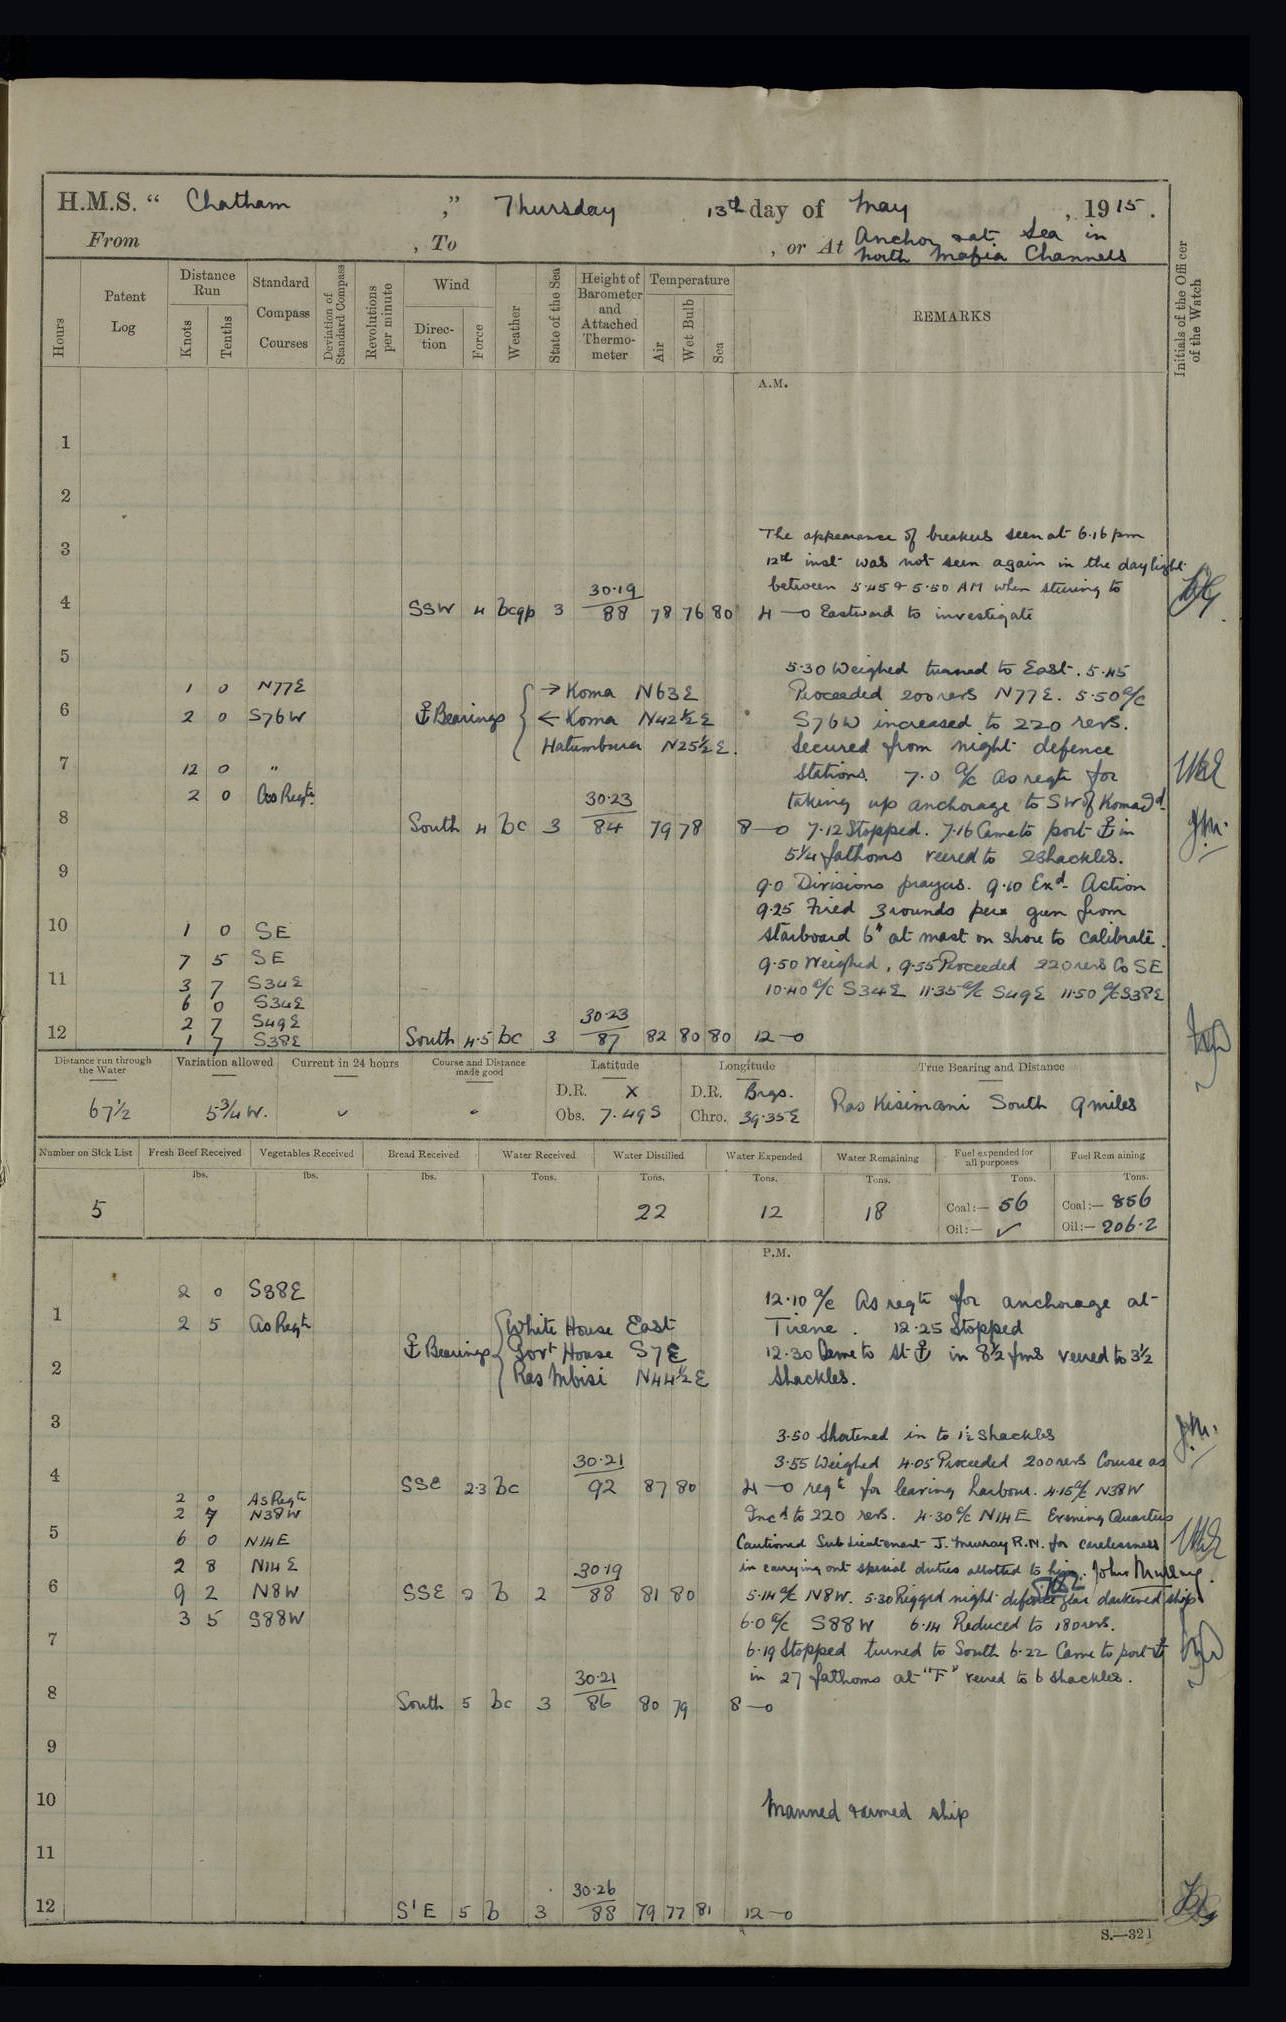 H.M.S. " Chatham ," Thursday 13th day of May , 1915.
From , To , or At Anchor & at Sea in
North Mafia Channels
Hours
Patent Log
Distance Run
Knots
Tenths
Standard Compass Courses
Deviation of Standard Compass
Revolutions per minute
Wind
Direction
Force
Weather
State of the Sea
Height of Barometer and Attached Thermometer
Temperature
Air
Wet Bulb
Sea
REMARKS
Initials of the Officer of the Watch
A.M.
1
2
The appearance of breakers seen at 6.16 pm
3
12th inst was not seen again in the daylight
between 5.45 & 5.50 AM when steering to
4 SSW 4 bcqp 3 30.19/88 78 76 80 4—0 Eastward to investigate
5
5.30 Weighed turned to East. 5.45
1 0 N77E → Koma N63E Proceeded 200 revs N77E. 5.50 a/c
6 2 0 S76W ⚓ Bearings ← Koma N42½E S76W increased to 220 revs.
Hatumbura N25½E. Secured from night defence
7 12 0 " stations. 7.0 a/c As reqte for
2 0 As Reqte taking up anchorage to SW of Koma Id
8 South 4 bc 3 30.23/84 79 78 8—0 7.12 Stopped. 7.16 Came to port ⚓ in
5¼ fathoms veered to 2 shackles.
9
9.0 Divisions prayers. 9.10 Exd Action
9.25 Fired 3 rounds per gun from
10 1 0 SE starboard 6" at mast on shore to calibrate.
7 5 SE 9.50 Weighed, 9.55 Proceeded 220 revs Co SE
11 3 7 S34E 10.40 a/c S34E 11.35 a/c S49E 11.50 a/c S38E
6 0 S34E
2 7 S49E
12 1 7 S38E South 4.5 bc 3 30.23/87 82 80 80 12—0
Distance run through the Water
Variation allowed
Current in 24 hours
Course and Distance made good
Latitude
Longitude
True Bearing and Distance
67½ 5¾ W.
D.R. X D.R. Brgs.
Obs. 7.49 S Chro. 39.35 E
Ras Kisimani South 9 miles
Number on Sick List
Fresh Beef Received
Vegetables Received
Bread Received
Water Received
Water Distilled
Water Expended
Water Remaining
Fuel expended for all purposes
Fuel Remaining
lbs. lbs. lbs. Tons. Tons. Tons. Tons. Tons. Tons.
5 22 12 18 Coal:— 56 Coal:— 856
Oil:— ✓ Oil:— 206.2
P.M.
2 0 S38E 12.10 a/c As reqte for anchorage at
1 2 5 As Reqte White House East Tirene. 12.25 Stopped
⚓ Bearings Govt House S7E 12.30 Came to St ⚓ in 8½ fms veered to 3½
2 Ras Mbisi N44½E shackles.
3
3.50 Shortened in to 1½ shackles
3.55 Weighed 4.05 Proceeded 200 revs Course as
4 SSE 2.3 bc 30.21/92 87 80 4—0 reqte for leaving harbour. 4.15 a/c N38W
2 0 As Reqte
2 7 N38W Incd to 220 revs. 4.30 a/c N14E Evening Quarters
5 6 0 N14E Cautioned Sub Lieutenant J. Murray R.N. for carelessness
2 8 N14E in carrying out special duties allotted to him. John Murray.
6 9 2 N8W SSE 2 b 2 30.19/88 81 80 5.14 a/c N8W. 5.30 Rigged night defence gear darkened ship
3 5 S88W 6.0 a/c S88W 6.14 Reduced to 180 revs.
7 6.19 Stopped turned to South 6.22 Came to port ⚓
in 27 fathoms at "F" veered to 6 shackles.
8 South 5 bc 3 30.21/86 80 79 8—0
9
10 Manned & armed ship
11
12 S'E 5 b 3 30.26/88 79 77 81 12—0
S.—321